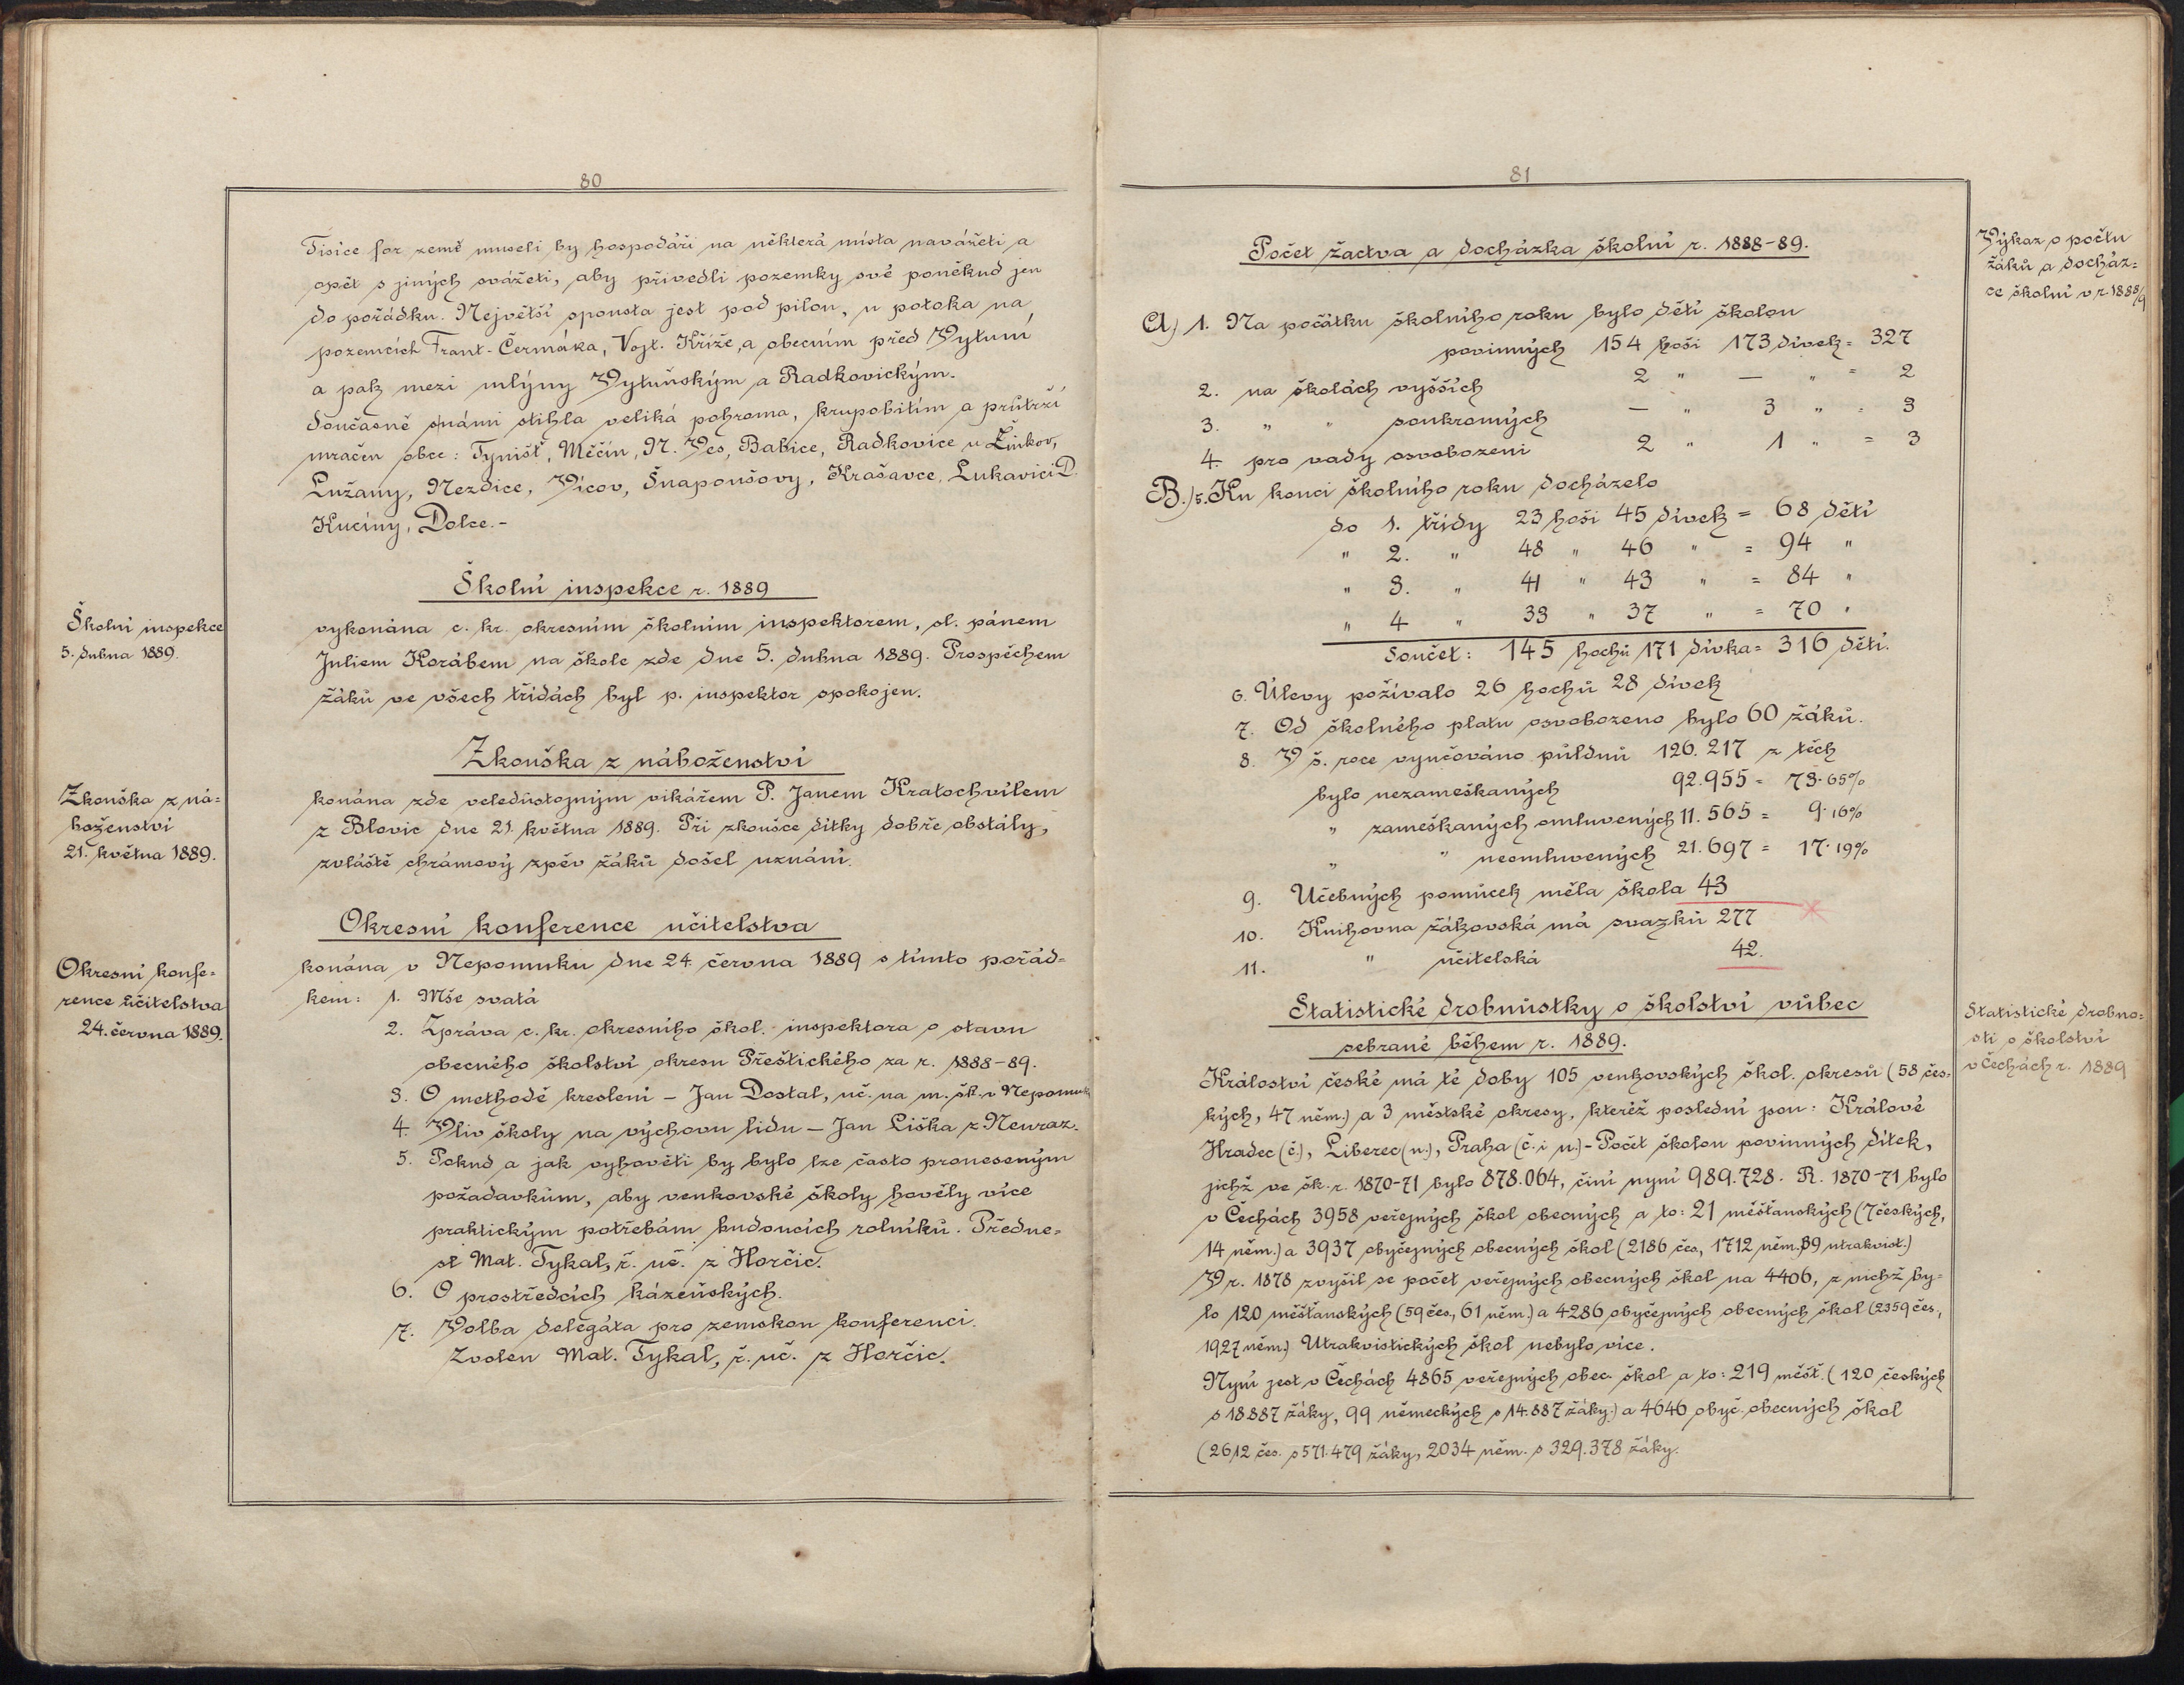 80
Tisíce for země museli by hospodáři na některá místa navážeti a
opět s jiných svážeti, aby přivedli pozemky své poněkud jen
do pořádku. Největší spousta jest pod pilou, u potoka na
pozemcích Frant. Čermáka, Vojt. Kříže, a obecním před Vytuní
a pak mezi mlýny Vytuňským a Radkovickým.
Současně s námi stihla veliká pohroma, krupobitím a průtrží
mračen obce: Týništ, Měčín, N. Ves, Babice, Radkovice u Žinkov,
Lužany, Nezdice, Vícov, Šnapoušovy, Krašavce, Lukavici D.
Kucíny, Dolce.-
Školní inspekce r. 1889
Školní inspekce
5. dubna 1889.
vykonána c. kr. okresním školním inspektorem, sl. pánem
Juliem Korábem na škole zde dne 5. dubna 1889. Prospěchem
žáků ve všech třídách byl p. inspektor spokojen.
Zkouška z náboženství
Zkouška z ná=
boženství
21. května 1889.
konána zde veledůstojným vikářem P. Janem Kratochvílem
z Blovic dne 21. května 1889. Při zkoušce dítky dobře obstály,
zvláště chrámový zpěv žáků došel uznání.
Okresní konference učitelstva
Okresní konfe=
rence učitelstva
24. června 1889.
konána v Nepomuku dne 24 června 1889 s tímto pořád=
kem: 1. Mše svatá
2. Zpráva c. kr. okresního škol. inspektora o stavu
obecného školství okresu Přeštického za r. 1888-89.
3. O methodě kreslení – Jan Dostal, uč. na m. šk. v Nepomuk
4. Vliv školy na výchovu lidu – Jan Liška z Neuraz.
5. Pokud a jak vyhověti by bylo lze často proneseným
požadavkům, aby venkovské školy hověly více
praktickým potřebám budoucích rolníků. Předne=
sl Mat. Tykal, ř. uč. z Horčic.
6. O prostředcích kázeňských.
7. Volba delegáta pro zemskou konferenci.
Zvolen Mat. Tykal, ř. uč. z Horčic.
81
Počet žactva a docházka školní r. 1888-89.
Výkaz o počtu
žáků a docház=
ce školní v r. 1888/9
A.) 1. Na počátku školního roku bylo dětí školou
povinných 154 hoši 173 dívek = 327
2. na školách vyšších 2 " — " = 2
3. " " soukromých — " 3 " = 3
4. pro vady osvobozeni 2 " 1 " = 3
B.) 5. Ku konci školního roku docházelo
do 1. třídy 23 hoši 45 dívek = 68 dětí
" 2. " 48 " 46 " = 94 "
" 3. " 41 " 43 " = 84 "
" 4 " 33 " 37 " = 70 "
Součet: 145 hochů 171 dívka = 316 dětí.
6. Úlevy požívalo 26 hochů 28 dívek
7. Od školného platu osvobozeno bylo 60 žáků.
8. V š. roce vyučováno půldnů 126.217 z těch
bylo nezameškaných 92.955 = 73.65%
" zameškaných omluvených 11.565 = 9.16%
" " neomluvených 21.697 = 17.19%
9. Učebných pomůcek měla škola 43
10. Knihovna žákovská má svazků 277
11. " učitelská 42.
Statistické drobnůstky o školství vůbec
sebrané během r. 1889.
Statistické drobno=
sti o školství
v Čechách r. 1889
Království české má té doby 105 venkovských škol. okresů (58 čes=
kých, 47 něm.) a 3 městské okresy, kteréž poslední jsou: Králové
Hradec (č.), Liberec (n.), Praha (č. i n.)- Počet školou povinných dítek,
jichž ve šk. r. 1870-71 bylo 878.064, činí nyní 989.728. R. 1870-71 bylo
v Čechách 3958 veřejných škol obecných a to: 21 měšťanských (7 českých,
14 něm.) a 3937 obyčejných obecných škol (2186 čes, 1712 něm. 39 utrakvist.)
V r. 1878 zvýšil se počet veřejných obecných škol na 4406, z nichž by=
lo 120 měšťanských (59 čes., 61 něm.) a 4286 obyčejných obecných škol (2359 čes.,
1927 něm.) Utrakvistických škol nebylo více.
Nyní jest v Čechách 4865 veřejných obec. škol a to: 219 měšť. (120 českých
s 18887 žáky, 99 německých s 14.887 žáky.) a 4646 obyč. obecných škol
(2612 čes. s 571.479 žáky, 2034 něm. s 329.378 žáky.